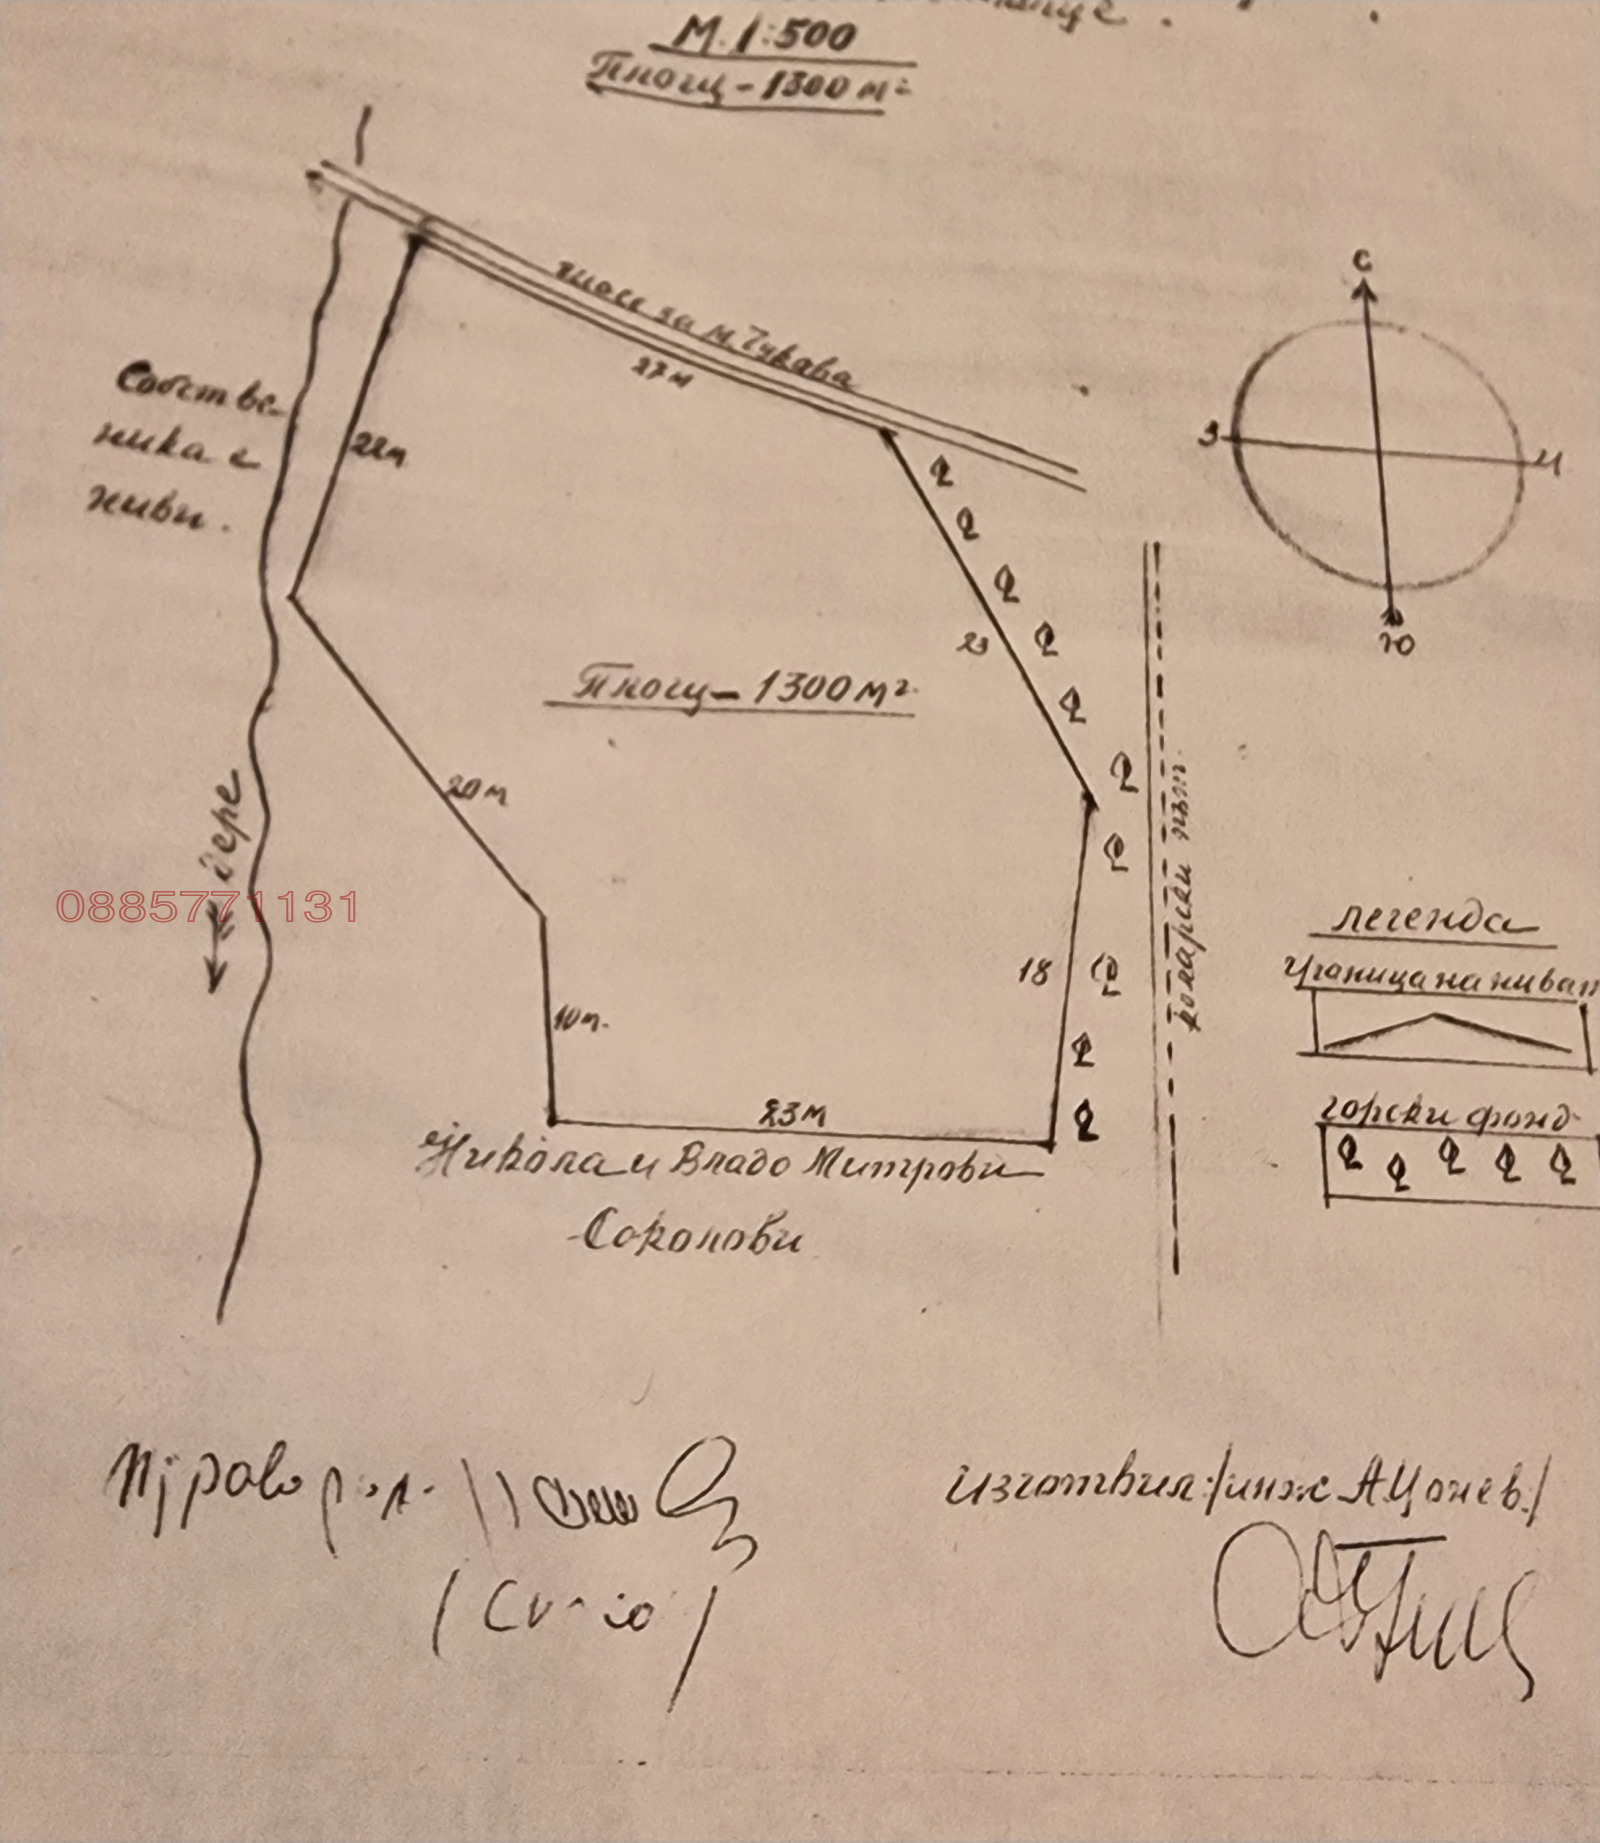 М. 1:500
Площ - 1300 м²
С
шосе за м. Чукава
27 м
Собстве-
ника е
живи.
22м
З
И
Ю
23
Площ - 1300 м²
20 м
дере
коларски път
0885771131
18
легенда
граница на нивата
10 м.
23 м
горски фонд
Никола и Владо Митрови
Соколови
Изготвил: /инж А. Цонев./